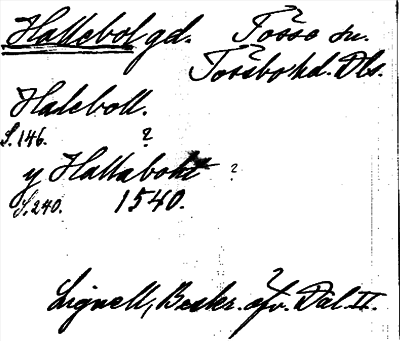 Hallebol gd. Tössö sn.
Tössbo hd. Dls.
Haleboll.
S. 146. ?
y Hallabohl ?
S. 240. 1540.
Lignell, Beskr. öfv. Dal. II.